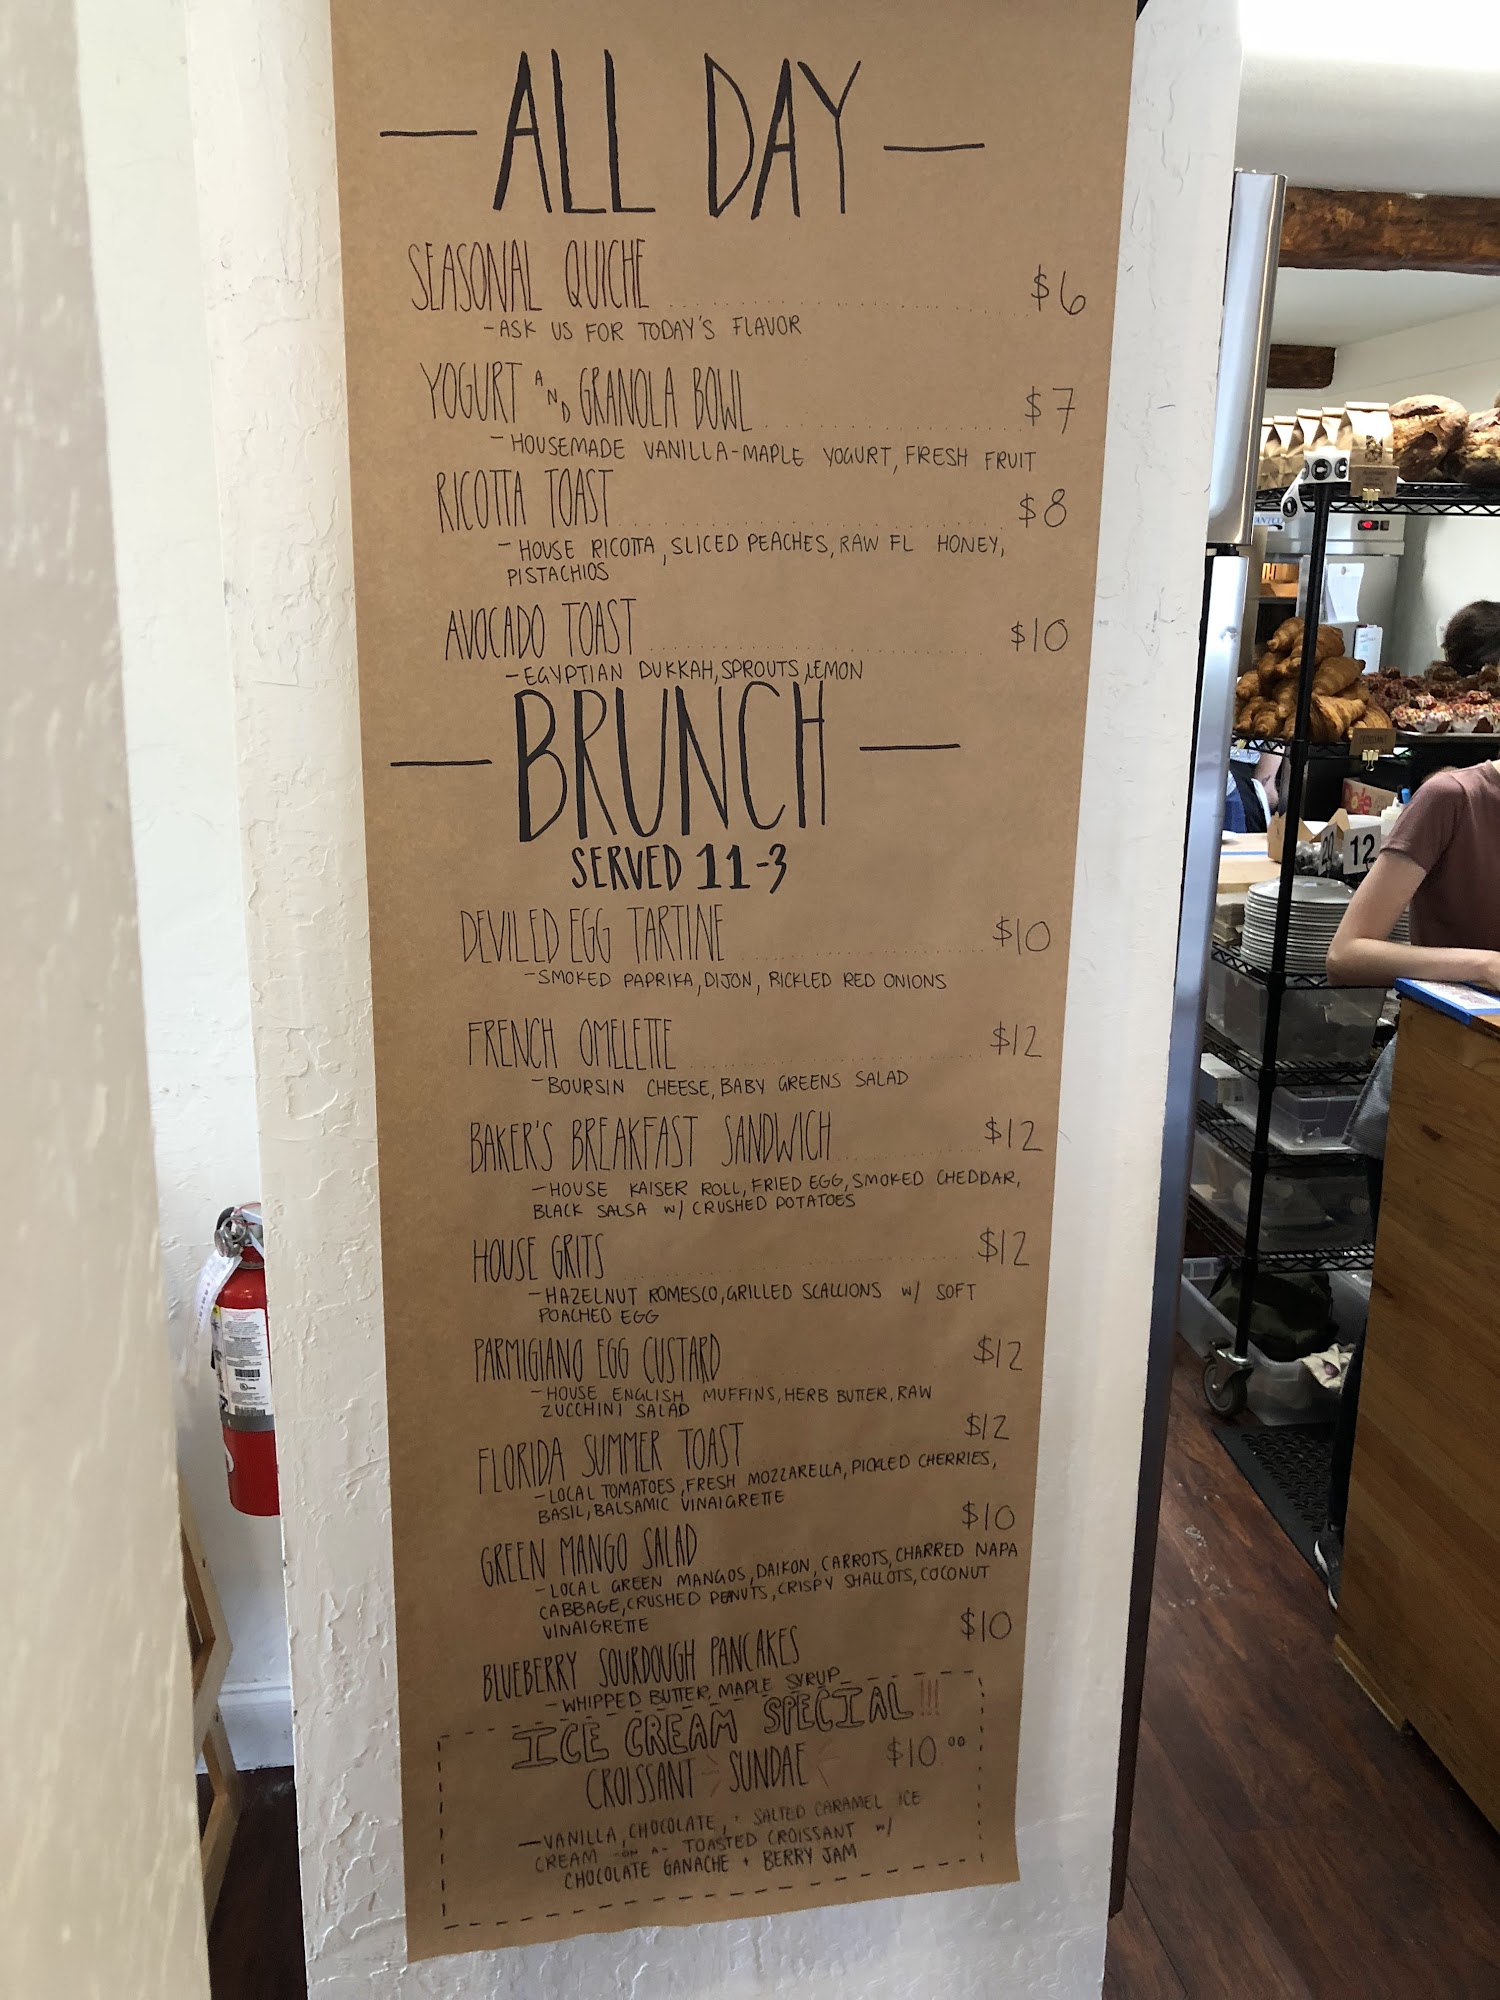 ALL DAY
SEASONAL QUICHE $6
-ASK US FOR TODAY'S FLAVOR
YOGURT AND GRANOLA BOWL $7
-HOUSEMADE VANILLA-MAPLE YOGURT, FRESH FRUIT
RICOTTA TOAST $8
-HOUSE RICOTTA, SLICED PEACHES, RAW FL HONEY,
PISTACHIOS
AVOCADO TOAST $10
-EGYPTIAN DUKKAH, SPROUTS, LEMON
BRUNCH
SERVED 11-3
DEVILED EGG TARTINE $10
-SMOKED PAPRIKA, DIJON, PICKLED RED ONIONS
FRENCH OMELETTE $12
-BOURSIN CHEESE, BABY GREENS SALAD
BAKER'S BREAKFAST SANDWICH $12
-HOUSE KAISER ROLL, FRIED EGG, SMOKED CHEDDAR,
BLACK SALSA W/ CRUSHED POTATOES
HOUSE GRITS $12
-HAZELNUT ROMESCO, GRILLED SCALLIONS W/ SOFT
POACHED EGG
PARMIGIANO EGG CUSTARD $12
-HOUSE ENGLISH MUFFINS, HERB BUTTER, RAW
ZUCCHINI SALAD
FLORIDA SUMMER TOAST $12
-LOCAL TOMATOES, FRESH MOZZARELLA, PICKLED CHERRIES,
BASIL, BALSAMIC VINAIGRETTE
GREEN MANGO SALAD $10
-LOCAL GREEN MANGOS, DAIKON, CARROTS, CHARRED NAPA
CABBAGE, CRUSHED PEANUTS, CRISPY SHALLOTS, COCONUT
VINAIGRETTE
BLUEBERRY SOURDOUGH PANCAKES $10
-WHIPPED BUTTER, MAPLE SYRUP
ICE CREAM SPECIAL!!!
CROISSANT SUNDAE $10.00
-VANILLA, CHOCOLATE, + SALTED CARAMEL ICE
CREAM -ON A- TOASTED CROISSANT W/
CHOCOLATE GANACHE + BERRY JAM
12